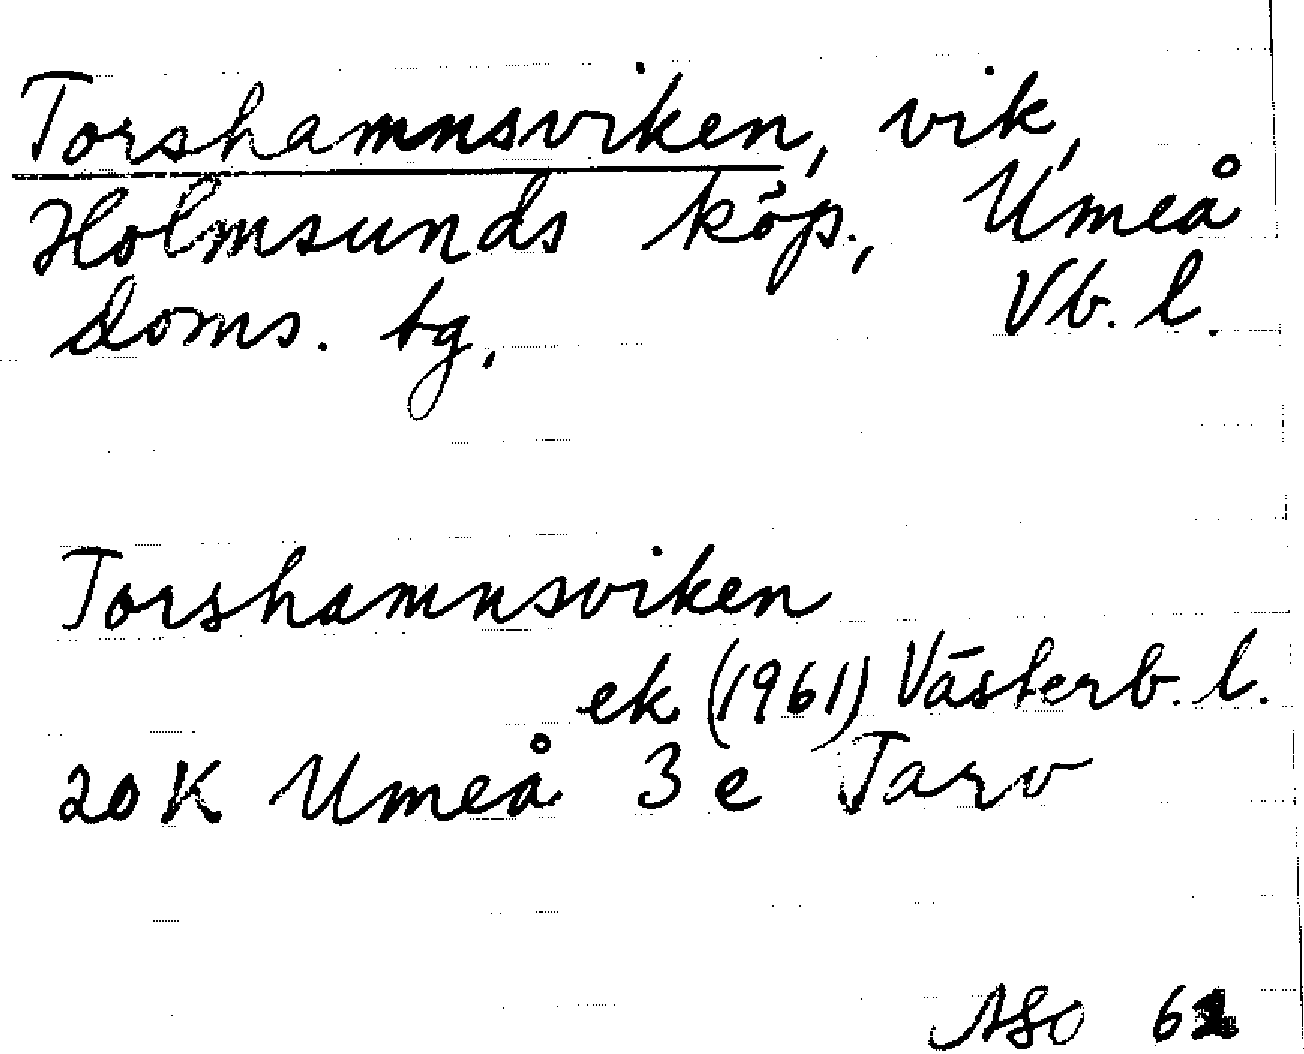 Torshamnsviken, vik,
Holmsunds köp., Umeå
doms. tg, Vb. l.
Torshamnsviken
ek (1961) Västerb. l.
20 K Umeå 3 e Tarv